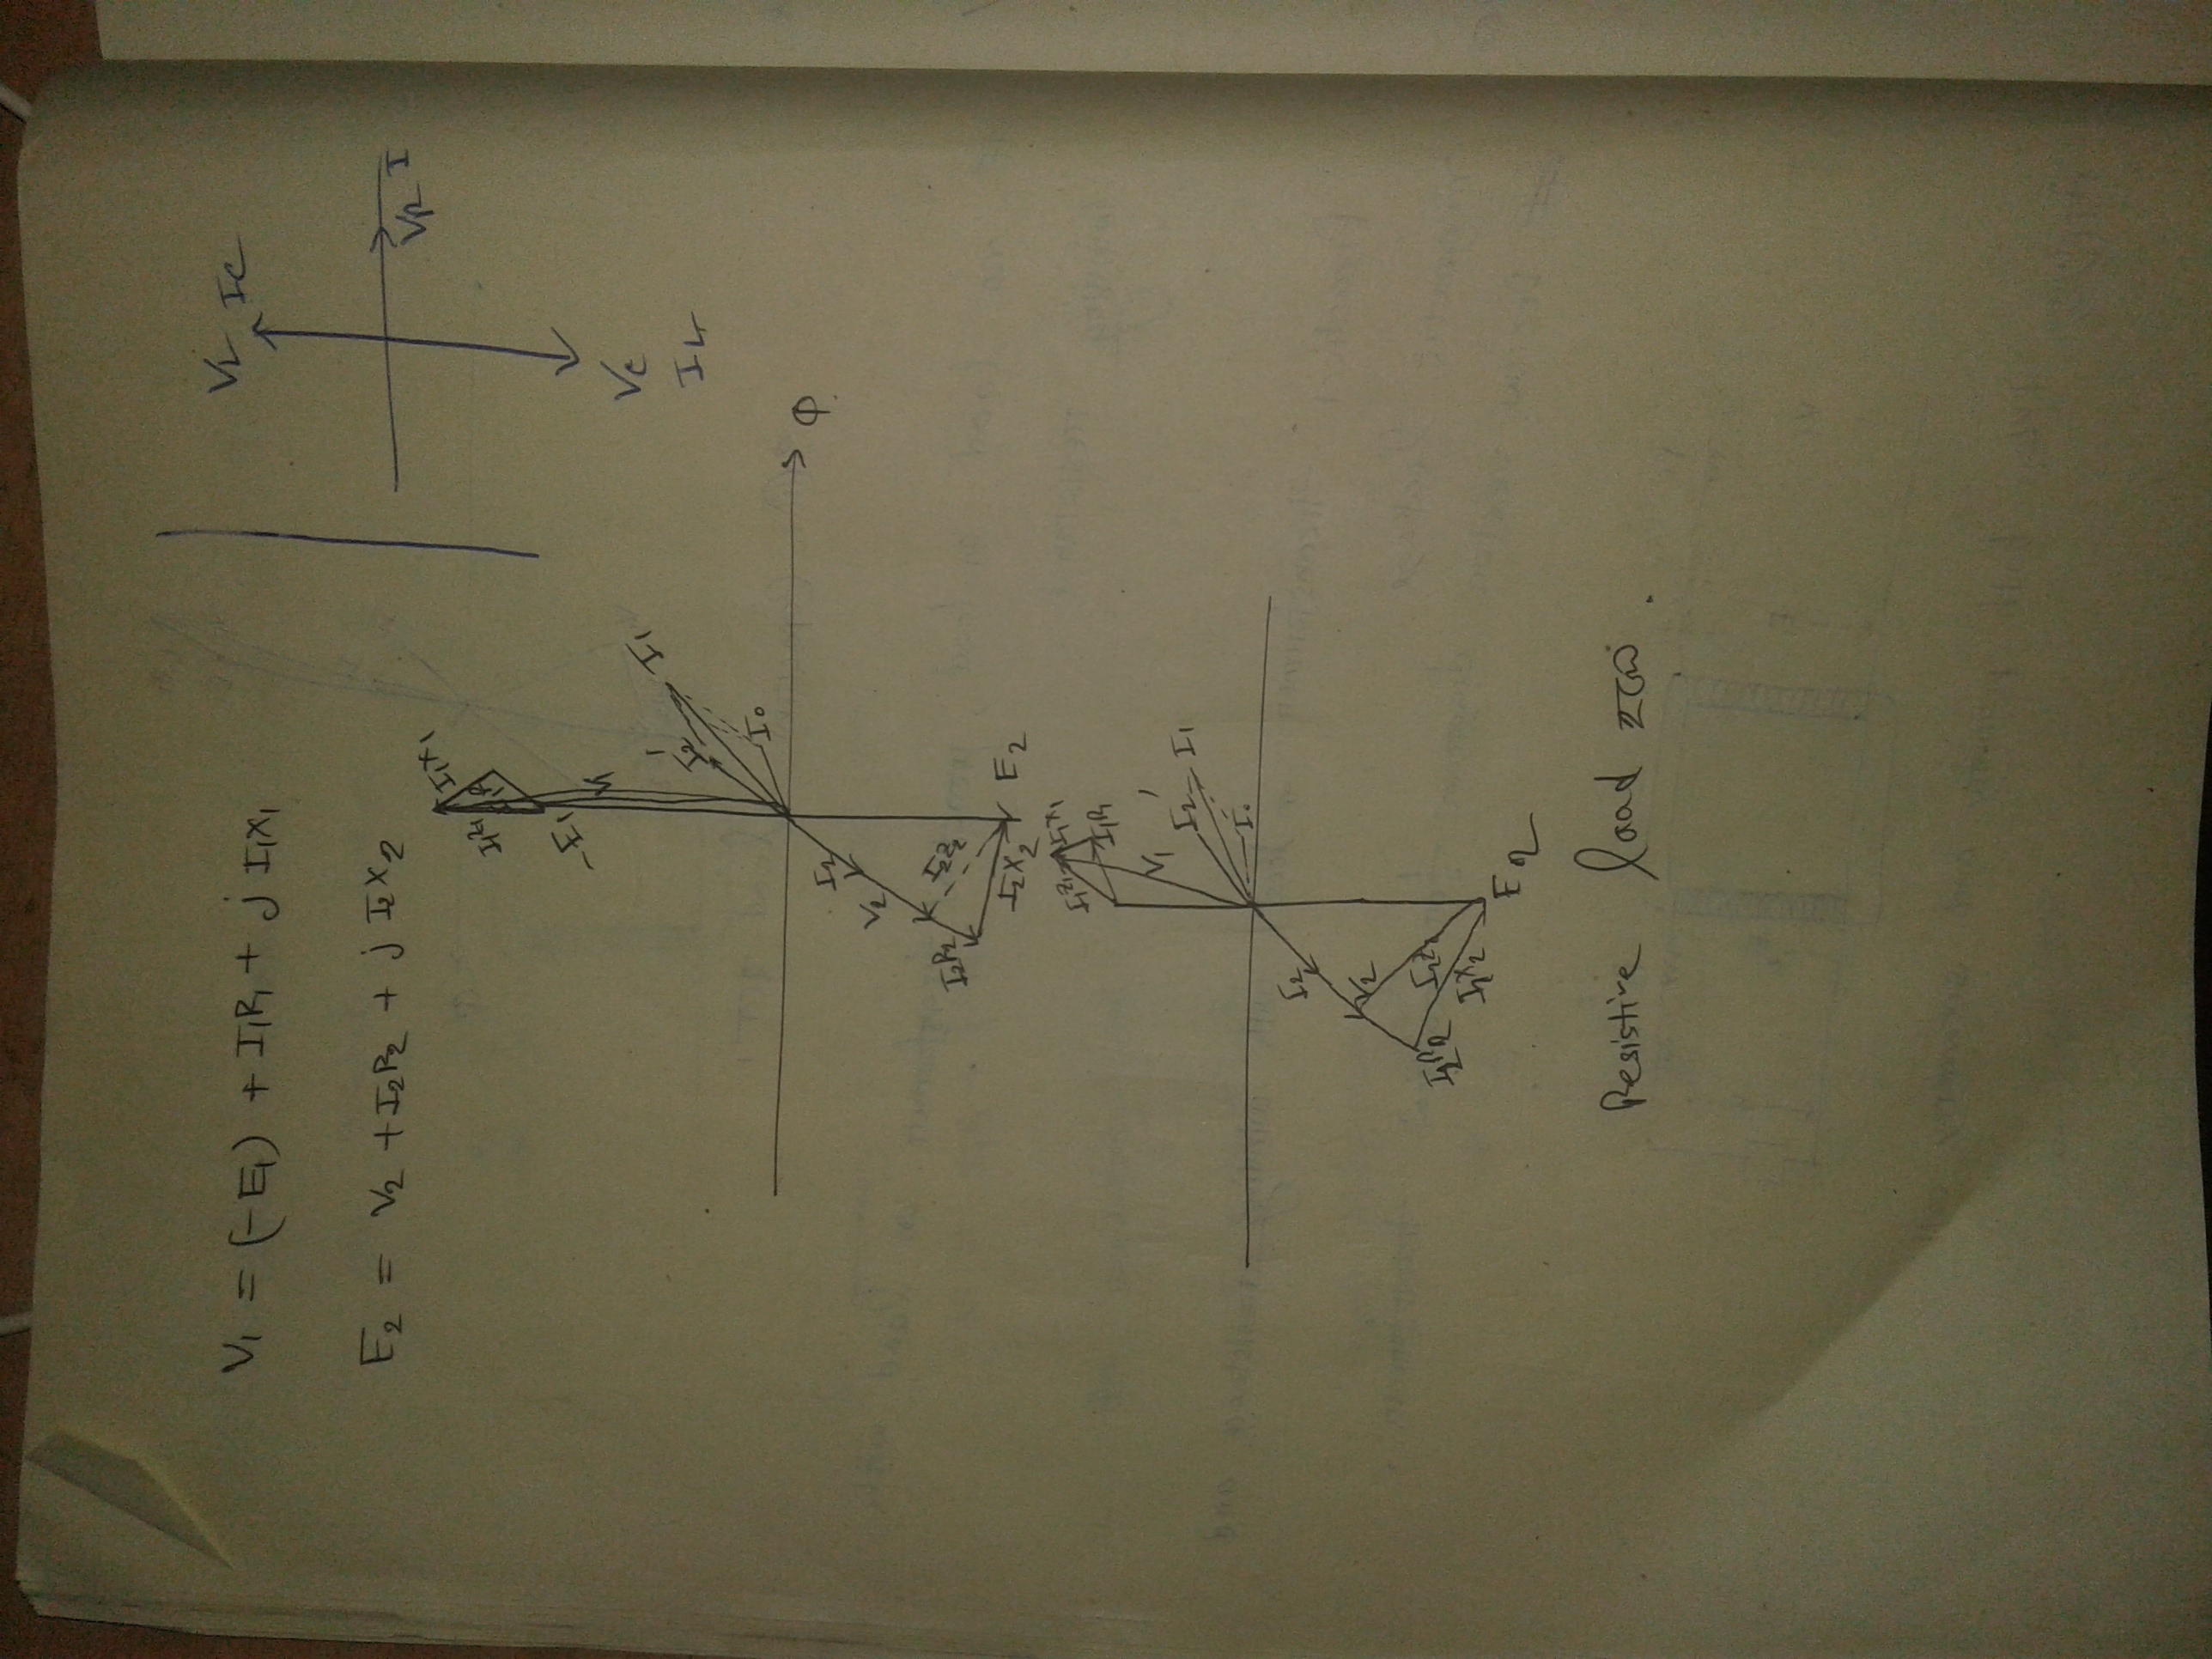 V₁ = (-E₁) + I₁R₁ + j I₁X₁
E₂ = V₂ + I₂R₂ + j I₂X₂
V_L I_C
V_R I
V_C
I_L
I₁X₁
I₁Z₁
-E₁
V₁
I₂'
I₁
I₀
Φ
I₂
V₂
I₂R₂
I₂Z₂
I₂X₂
E₂
I₁Z₁
I₁X₁
I₁R₁
V₁
I₂'
I₁
I₀
I₂
V₂
I₂R₂
I₂Z₂
I₂X₂
E₂
Resistive load